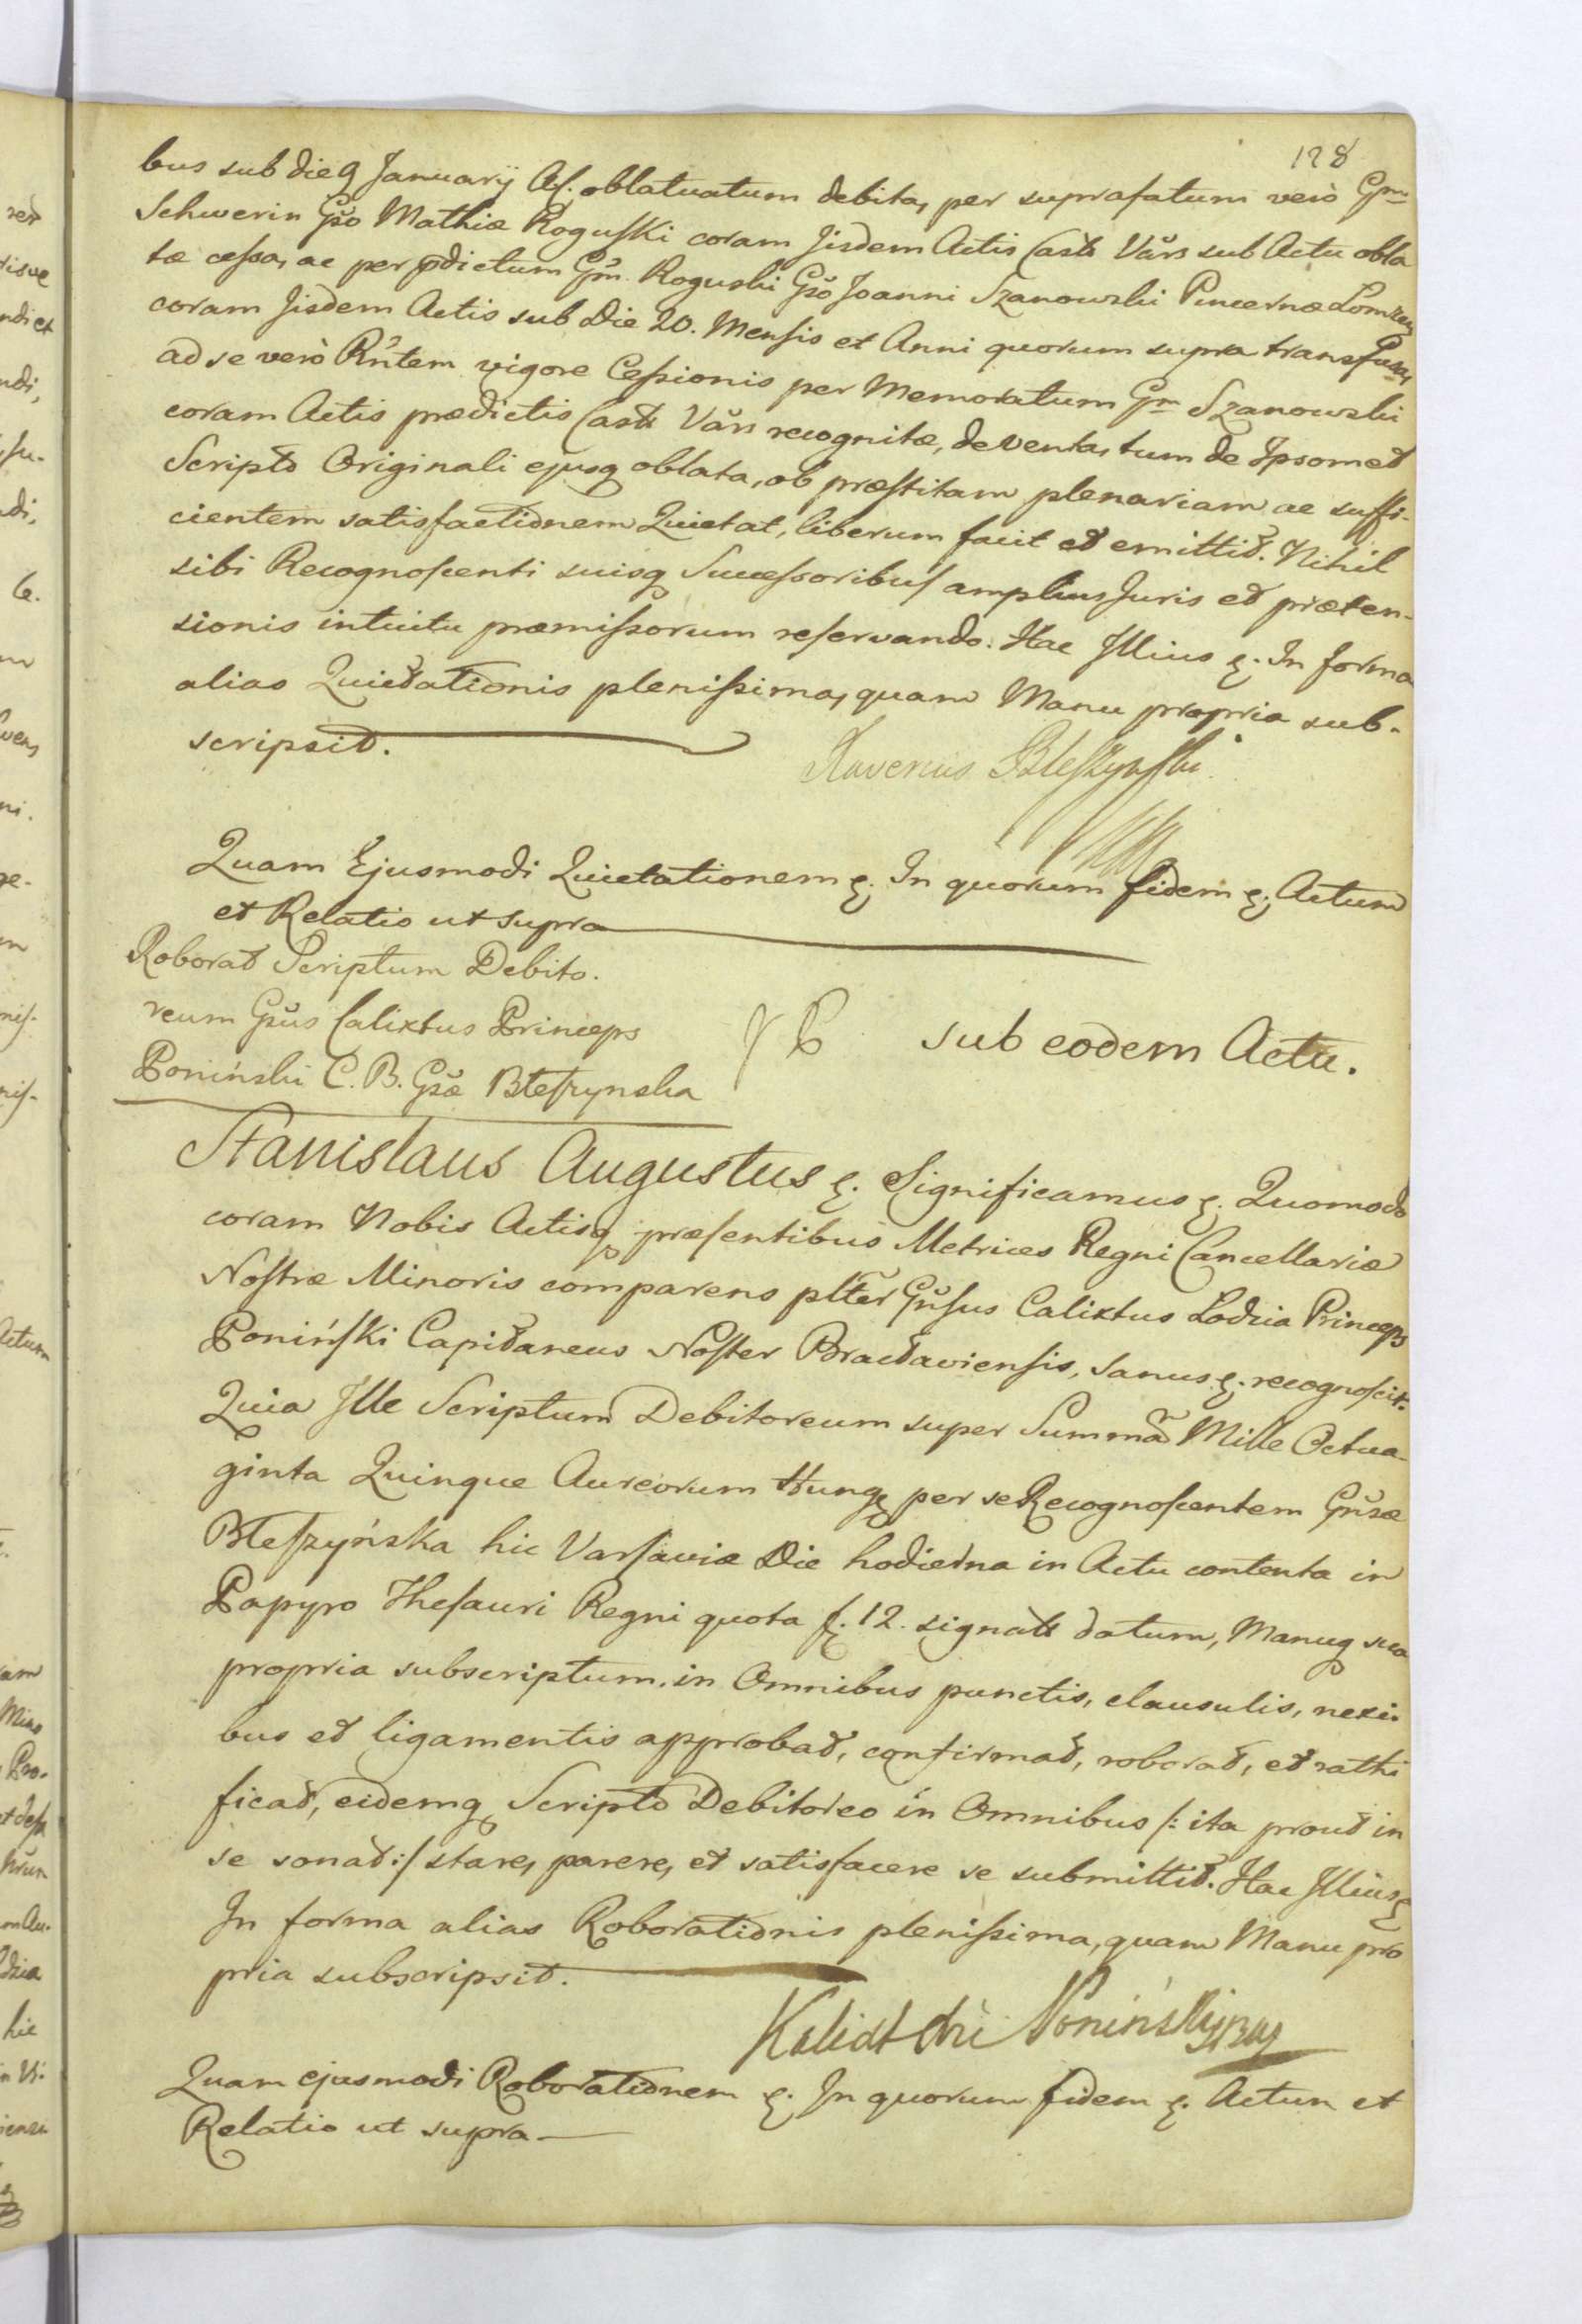 128
bus sub die 9 Januarij Af. oblatuatum debita, per suprafatum verò Gm
Schwerin Gso Mathiæ Roguski coram Jisdem Actis Castr Vars sub Actu obla
tæ cessa, ac per pdictum Gm. Roguski Gso Joanni Szanowski Pincernæ Lomzen
coram Jisdem Actis sub Die 20. Mensis et Anni quorum supra transfusa,
ad se verò Rntem vigore Cessionis per Memoratum Gm Szanowski
coram Actis prædictis Castr Vars recognitæ, deventa, tum de Ipsomet
Scripto Originali ejusq oblata, ob præstitam plenariam ac suffi-
cientem satisfactionem Quietat, liberum facit et emittit. Nihil
sibi Recognoscenti suisq Successoribus amplius Juris et præten-
sionis intuitu præmissorum reservando. Hac Illius &. In forma
alias Quietationis plenissima, quam Manu propria sub-
scripsit.
Xaverius Bleszynski
Quam Ejusmodi Quietationem &. In quorum fidem &. Actum
et Relatio ut supra
Roborat Scriptum Debito.
reum Gsus Calixtus Princeps
Poniński C. B. Gsæ Bleszynska
sub eodem Actu.
Stanislaus Augustus &. Significamus &. Quomodo
coram Nobis Actisq præsentibus Metrices Regni Cancellariæ
Nostræ Minoris comparens plter Gnsus Calixtus Lodzia Princeps
Poniński Capitaneus Noster Bracłaviensis, Sanus &. recognoscit.
Quia Ille Scriptum Debitoreum super Summa Mille Octua-
ginta Quinque Aureorum Hung per se Recognoscentem Gnsæ
Błeszyńska hic Varsaviæ Die hodierna in Actu contenta in
Papyro Thesauri Regni quota f. 12. signato datum, Manuq sua
propria subscriptum. in Omnibus punctis, clausulis, nexi-
bus et ligamentis approbat, confirmat, roborat, et rathi
ficat, eidemq Scripto Debitoreo in Omnibus /: ita prout in
se sonat :/ stare, parere, et satisfacere se submittit. Hac Illius &
In forma alias Roborationis plenissima, quam Manu pro
pria subscripsit.
Kalixt Poniński
Quam ejusmodi Roborationem &. In quorum fidem &. Actum et
Relatio ut supra